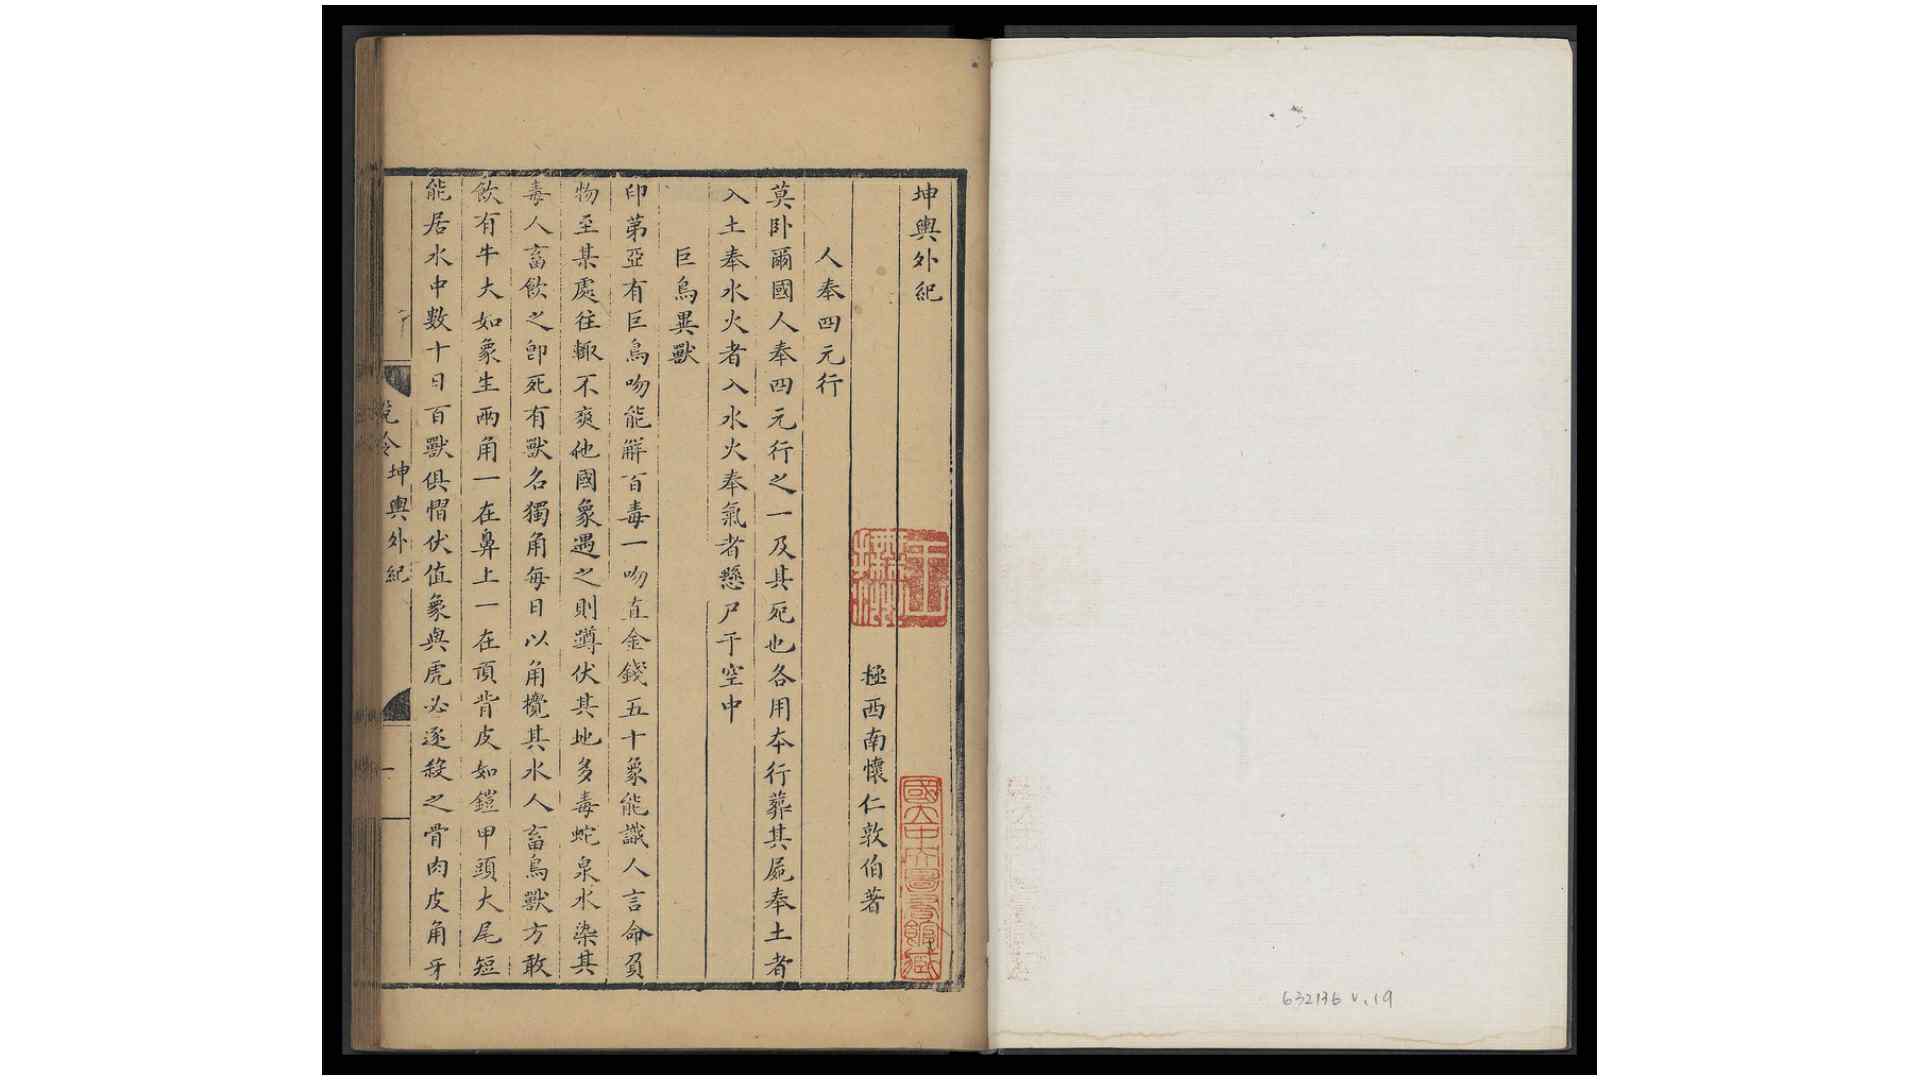 坤輿外紀
極西南懷仁敦伯著
人奉四元行
莫卧爾國人奉四元行之一及其死也各用本行葬其屍奉土者
入土奉水火者入水火奉氣者懸尸于空中
巨鳥異獸
印第亞有巨鳥吻能解百毒一吻直金錢五十象能識人言命負
物至某處往輙不爽他國象遇之則蹲伏其地多毒蛇泉水染其
毒人畜飲之卽死有獸名獨角每日以角攪其水人畜鳥獸方敢
飲有牛大如象生兩角一在鼻上一在頂背皮如鎧甲頭大尾短
能居水中數十日百獸俱慴伏值象與虎必逐殺之骨肉皮角牙
說鈴
坤輿外紀
一
國立中央圖書館藏
632136 v.19